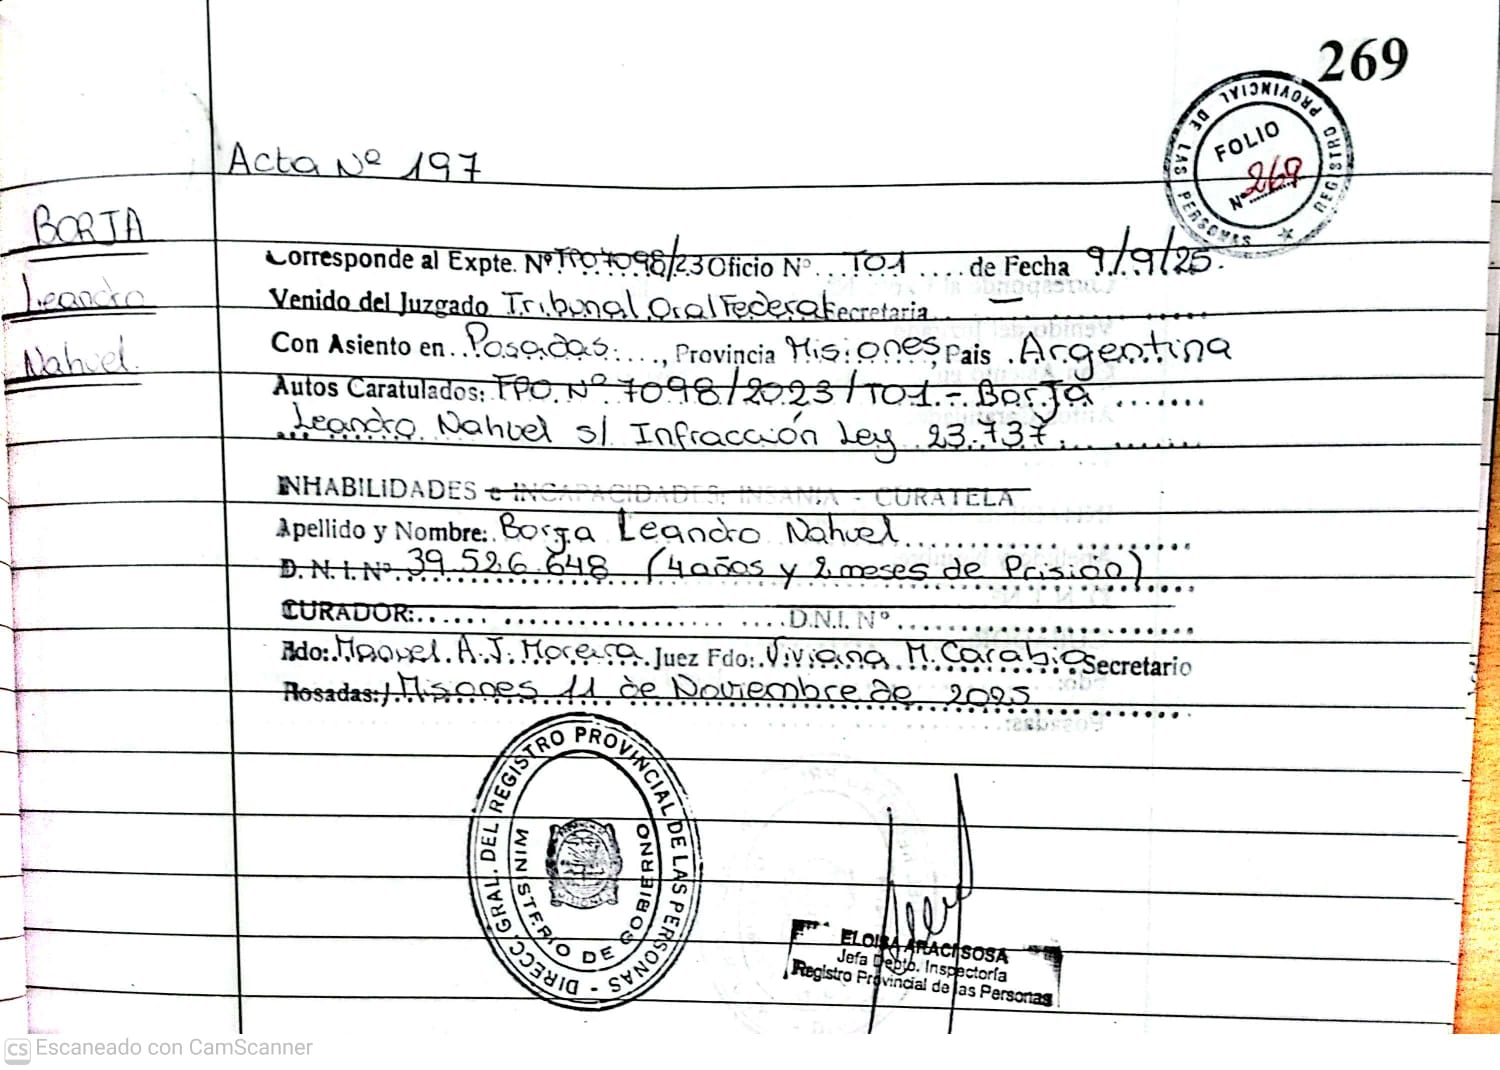 269
REGISTRO PROVINCIAL DE LAS PERSONAS
FOLIO
Nº 269
Acta Nº 197
BORJA
Leandro
Nahuel.
Corresponde al Expte. Nº FPO 7098/23 Oficio Nº... TO1 .... de Fecha 9/9/25.
Venido del Juzgado Tribunal Oral Federal Secretaria —
Con Asiento en.. Posadas....., Provincia Misiones, Pais .Argentina
Autos Caratulados: FPO. Nº 7098/2023/TO1.- Borja .......
Leandro Nahuel s/ Infracción Ley 23.737.
INHABILIDADES e INCAPACIDADES: INSANIA - CURATELA
Apellido y Nombre: Borja Leandro Nahuel
D.N.I. Nº. 39.526.648 (4 años y 2 meses de Prisión)
CURADOR:........ D.N.I. Nº
Fdo: Manuel A.J. Moreira. Juez Fdo: Viviana M. Carabio Secretario
Posadas:, Misiones 11 de Noviembre de 2025
DIRECC. GRAL. DEL REGISTRO PROVINCIAL DE LAS PERSONAS -
MINISTERIO DE GOBIERNO
ELOISA ARACI SOSA
Jefa Depto. Inspectoría
Registro Provincial de las Personas
CS Escaneado con CamScanner